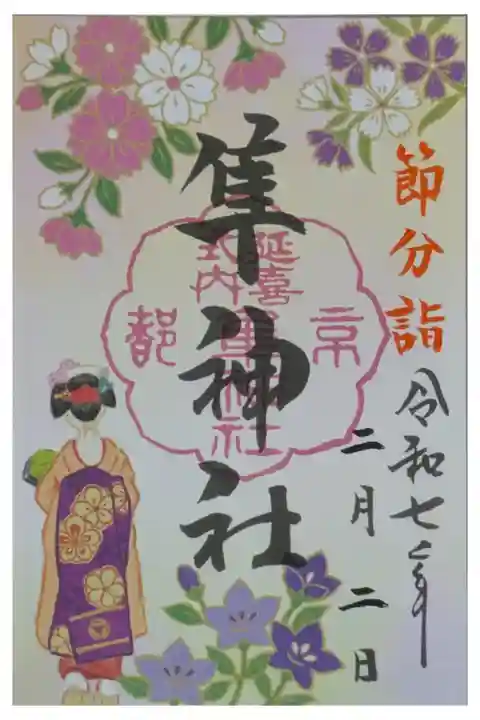 節分詣
令和七年
二月二日
隼神社
京都
延喜
式内
隼神社